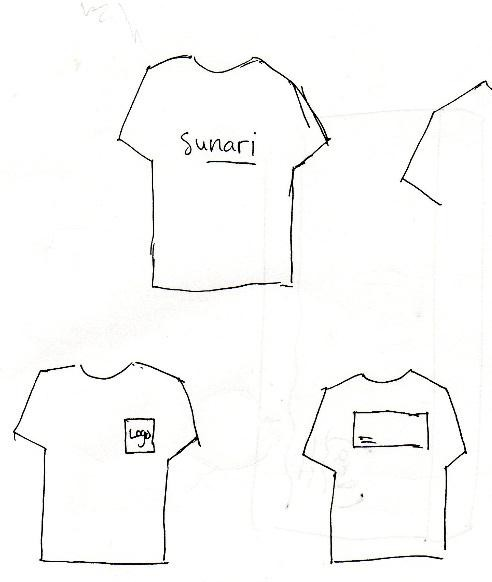 Sunari
Logo